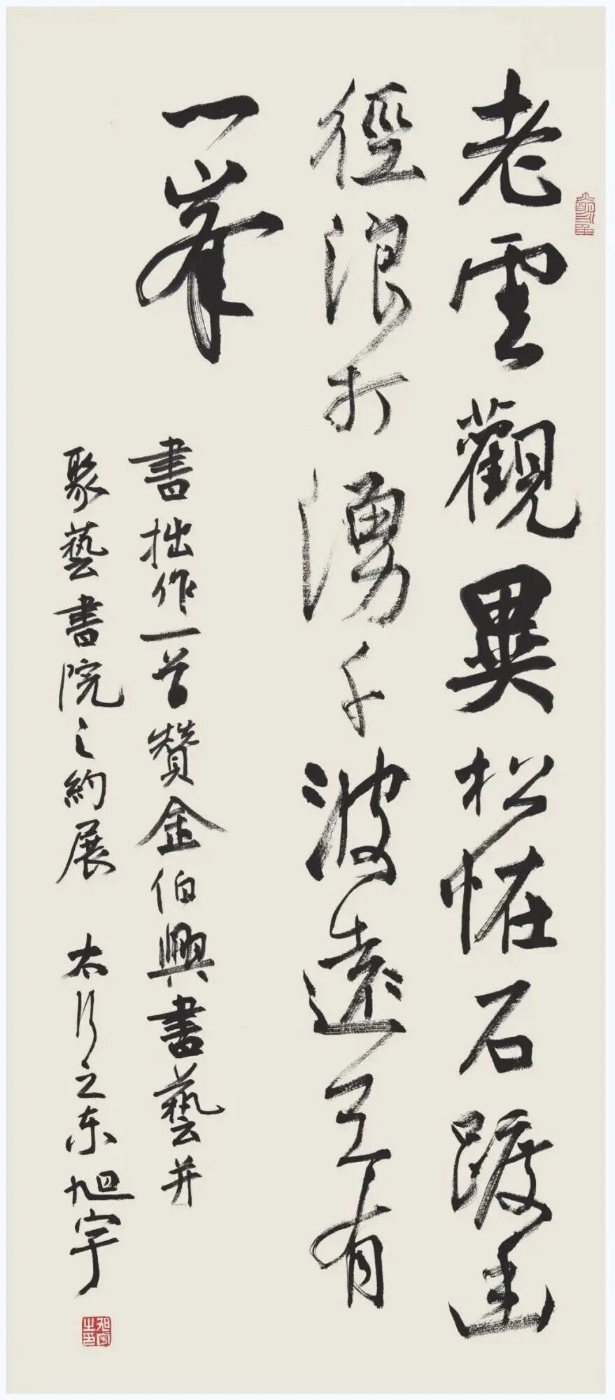 老雲觀異松怪石踱幽
徑浪打湧千波遠天有
一峯
書拙作一首贊金伯興書藝并
聚藝書院之約展 太行之东旭宇
旭宇